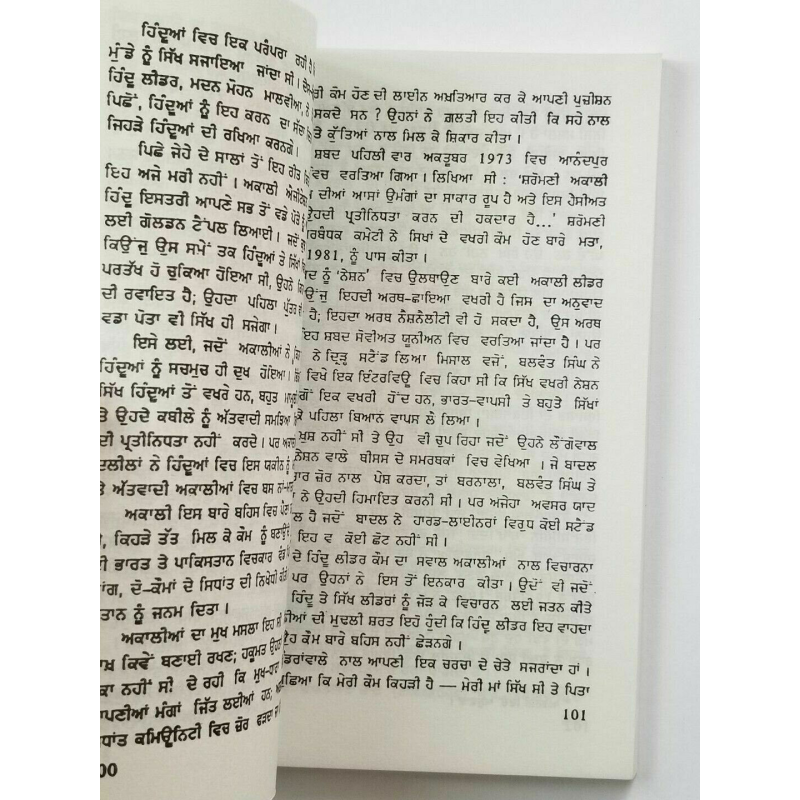 ਹਿੰਦੂਆਂ ਵਿਚ ਇਕ ਪਰੰਪਰਾ ਰਹੀ ਹੈ
ਮੁੰਡੇ ਨੂੰ ਸਿੱਖ ਸਜਾਇਆ ਜਾਂਦਾ ਸੀ।
ਹਿੰਦੂ ਲੀਡਰ, ਮਦਨ ਮੋਹਨ ਮਾਲਵੀਆ, ਨੇ
ਪਿਛੋਂ, ਹਿੰਦੂਆਂ ਨੂੰ ਇਹ ਕਰਨ ਦਾ ਸੱਦਾ
ਜਿਹੜੇ ਹਿੰਦੂਆਂ ਦੀ ਰਖਿਆ ਕਰਨਗੇ।
ਪਿਛੇ ਜੇਹੇ ਦੇ ਸਾਲਾਂ ਤੋਂ ਇਹ ਰੀਤ
ਇਹ ਅਜੇ ਮਰੀ ਨਹੀਂ। ਅਕਾਲੀ
ਹਿੰਦੂ ਇਸਤਰੀ ਆਪਣੇ ਸਭ ਤੋਂ ਵਡੇ ਪੋਤੇ ਨੂੰ
ਲਈ ਗੋਲਡਨ ਟੈਂਪਲ ਲਿਆਈ। ਜਦੋਂ
ਕਿਉਂਜੁ ਉਸ ਸਮੇਂ ਤਕ ਹਿੰਦੂਆਂ ਤੇ ਸਿੱਖਾਂ
ਪਰਤੱਖ ਹੋ ਚੁਕਿਆ ਹੋਇਆ ਸੀ, ਉਹਨੇ
ਦੀ ਰਵਾਇਤ ਹੈ; ਉਹਦਾ ਪਹਿਲਾ ਪੁੱਤਰ
ਵਡਾ ਪੋਤਾ ਵੀ ਸਿੱਖ ਹੀ ਸਜੇਗਾ।
ਇਸੇ ਲਈ, ਜਦੋਂ ਅਕਾਲੀਆਂ ਨੇ
ਹਿੰਦੂਆਂ ਨੂੰ ਸਚਮੁਚ ਹੀ ਦੁਖ ਹੋਇਆ।
ਸਿੱਖ ਹਿੰਦੂਆਂ ਤੋਂ ਵਖਰੇ ਹਨ, ਬਹੁਤ
ਤੇ ਉਹਦੇ ਕਬੀਲੇ ਨੂੰ ਅੱਤਵਾਦੀ ਸਮਝਿਆ
ਦੀ ਪ੍ਰਤੀਨਿਧਤਾ ਨਹੀਂ ਕਰਦੇ। ਪਰ
ਦਲੀਲਾਂ ਨੇ ਹਿੰਦੂਆਂ ਵਿਚ ਇਸ ਯਕੀਨ ਨੂੰ
ਤੇ ਅੱਤਵਾਦੀ ਅਕਾਲੀਆਂ ਵਿਚ ਬਸ
ਅਕਾਲੀ ਇਸ ਬਾਰੇ ਬਹਿਸ ਵਿਚ
ਕਿਹੜੇ ਤੱਤ ਮਿਲ ਕੇ ਕੌਮ ਨੂੰ ਬਣਾਉਂਦੇ
ਭਾਰਤ ਤੇ ਪਾਕਿਸਤਾਨ ਵਿਚਕਾਰ
ਦੋ-ਕੌਮਾਂ ਦੇ ਸਿਧਾਂਤ ਦੀ ਨਿਖੇਧੀ ਕੀਤੀ
ਤਾਨ ਨੂੰ ਜਨਮ ਦਿਤਾ।
ਅਕਾਲੀਆਂ ਦਾ ਮੁਖ ਮਸਲਾ ਇਹ ਸੀ
ਕਿਵੇਂ ਬਣਾਈ ਰਖਣ; ਹਕੂਮਤ
ਨਹੀਂ ਸੀ ਦੇ ਰਹੀ ਕਿ
ਮੰਗਾਂ ਜਿੱਤ ਲਈਆਂ ਹਨ;
ਕਮਿਊਨਿਟੀ ਵਿਚ ਜ਼ੋਰ ਫੜਦਾ
00
ਤੀ ਕੌਮ ਹੋਣ ਦੀ ਲਾਈਨ ਅਖ਼ਤਿਆਰ ਕਰ ਕੇ ਆਪਣੀ ਪੁਜ਼ੀਸ਼ਨ
ਸਕਦੇ ਸਨ? ਉਹਨਾਂ ਨੇ ਗਲਤੀ ਇਹ ਕੀਤੀ ਕਿ ਸਹੇ ਨਾਲ
ਤੇ ਕੁੱਤਿਆਂ ਨਾਲ ਮਿਲ ਕੇ ਸ਼ਿਕਾਰ ਕੀਤਾ।
ਸ਼ਬਦ ਪਹਿਲੀ ਵਾਰ ਅਕਤੂਬਰ 1973 ਵਿਚ ਆਨੰਦਪੁਰ
ਵਿਚ ਵਰਤਿਆ ਗਿਆ। ਲਿਖਿਆ ਸੀ: 'ਸ਼ਰੋਮਣੀ ਅਕਾਲੀ
ਦੀਆਂ ਆਸਾਂ ਉਮੰਗਾਂ ਦਾ ਸਾਕਾਰ ਰੂਪ ਹੈ ਅਤੇ ਇਸ ਹੈਸੀਅਤ
ਉਹਦੀ ਪ੍ਰਤੀਨਿਧਤਾ ਕਰਨ ਦੀ ਹਕਦਾਰ ਹੈ...' ਸ਼ਰੋਮਣੀ
ਰਬੰਧਕ ਕਮੇਟੀ ਨੇ ਸਿਖਾਂ ਦੇ ਵਖਰੀ ਕੌਮ ਹੋਣ ਬਾਰੇ ਮਤਾ,
1981, ਨੂੰ ਪਾਸ ਕੀਤਾ।
ਨੂੰ 'ਨੇਸ਼ਨ' ਵਿਚ ਉਲਥਾਉਣ ਬਾਰੇ ਕਈ ਅਕਾਲੀ ਲੀਡਰ
ਉਂਜੁ ਇਹਦੀ ਅਰਥ-ਛਾਇਆ ਵਖਰੀ ਹੈ ਜਿਸ ਦਾ ਅਨੁਵਾਦ
ਹੈ; ਇਹਦਾ ਅਰਥ ਨੈਸ਼ਨੈਲੀਟੀ ਵੀ ਹੋ ਸਕਦਾ ਹੈ, ਉਸ ਅਰਥ
ਇਹ ਸ਼ਬਦ ਸੋਵੀਅਤ ਯੂਨੀਅਨ ਵਿਚ ਵਰਤਿਆ ਜਾਂਦਾ ਹੈ। ਪਰ
ਨੇ ਦ੍ਰਿੜ੍ਹ ਸਟੈਂਡ ਲਿਆ ਮਿਸਾਲ ਵਜੋਂ, ਬਲਵੰਤ ਸਿੰਘ ਨੇ
ਵਿਖੇ ਇਕ ਇੰਟਰਵਿਊ ਵਿਚ ਕਿਹਾ ਸੀ ਕਿ ਸਿੱਖ ਵਖਰੀ ਨੇਸ਼ਨ
ਇਕ ਵਖਰੀ ਹੋਂਦ ਹਨ, ਭਾਰਤ-ਵਾਪਸੀ ਤੇ ਬਹੁਤੇ ਸਿੱਖਾਂ
ਕੇ ਪਹਿਲਾ ਬਿਆਨ ਵਾਪਸ ਲੈ ਲਿਆ।
ਖੁਸ਼ ਨਹੀਂ ਸੀ ਤੇ ਉਹ ਵੀ ਚੁਪ ਰਿਹਾ ਜਦੋਂ ਉਹਨੇ ਲੌਂਗੋਵਾਲ
ਨੇਸ਼ਨ ਵਾਲੇ ਥੀਸਸ ਦੇ ਸਮਰਥਕਾਂ ਵਿਚ ਵੇਖਿਆ। ਜੇ ਬਾਦਲ
ਜ਼ੋਰ ਨਾਲ ਪੇਸ਼ ਕਰਦਾ, ਤਾਂ ਬਰਨਾਲਾ, ਬਲਵੰਤ ਸਿੰਘ ਤੇ
ਨੇ ਉਹਦੀ ਹਿਮਾਇਤ ਕਰਨੀ ਸੀ। ਪਰ ਅਜੇਹਾ ਅਵਸਰ ਯਾਦ
ਹੈ ਜਦੋਂ ਬਾਦਲ ਨੇ ਹਾਰਡ-ਲਾਈਨਰਾਂ ਵਿਰੁਧ ਕੋਈ ਸਟੈਂਡ
ਇਹ ਵ ਕੋਈ ਛੋਟ ਨਹੀਂ ਸੀ।
ਦੇ ਹਿੰਦੂ ਲੀਡਰ ਕੌਮ ਦਾ ਸਵਾਲ ਅਕਾਲੀਆਂ ਨਾਲ ਵਿਚਾਰਨਾ
ਪਰ ਉਹਨਾਂ ਨੇ ਇਸ ਤੋਂ ਇਨਕਾਰ ਕੀਤਾ। ਉਦੋਂ ਵੀ ਜਦੋਂ
ਹਿੰਦੂ ਤੇ ਸਿੱਖ ਲੀਡਰਾਂ ਨੂੰ ਜੋੜ ਕੇ ਵਿਚਾਰਨ ਲਈ ਜਤਨ ਕੀਤੇ
ਲੀਆਂ ਦੀ ਮੁਢਲੀ ਸ਼ਰਤ ਇਹੋ ਹੁੰਦੀ ਕਿ ਹਿੰਦੂ ਲੀਡਰ ਇਹ ਵਾਹਦਾ
ਹ ਕੌਮ ਬਾਰੇ ਬਹਿਸ ਨਹੀਂ ਛੇੜਨਗੇ।
ਡਰਾਂਵਾਲੇ ਨਾਲ ਆਪਣੀ ਇਕ ਚਰਚਾ ਦੇ ਚੇਤੇ ਸਜਰਾਂਦਾ ਹਾਂ।
ਛਿਆ ਕਿ ਮੇਰੀ ਕੌਮ ਕਿਹੜੀ ਹੈ — ਮੇਰੀ ਮਾਂ ਸਿੱਖ ਸੀ ਤੇ ਪਿਤਾ
101